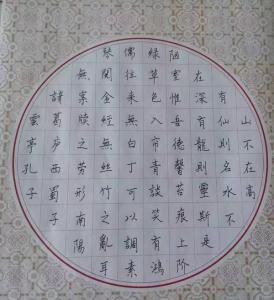 山不在高
有仙則名水不
在深有龍則靈斯是
陋室惟吾德馨苔痕上阶
綠草色入帘青談笑有鴻
儒往來無白丁可以調素
琴閱金經無絲竹之亂耳
無案牘之勞形南陽
諸葛庐西蜀子
雲亭孔子